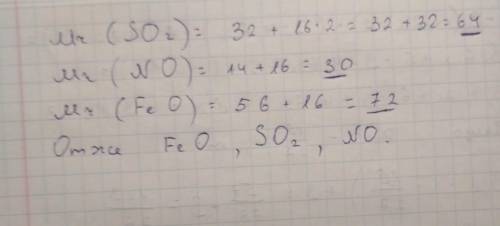 Mr (SO₂) = 32 + 16·2 = 32 + 32 = 64
Mr (NO) = 14 + 16 = 30
Mr (FeO) = 56 + 16 = 72
Отже FeO, SO₂, NO.